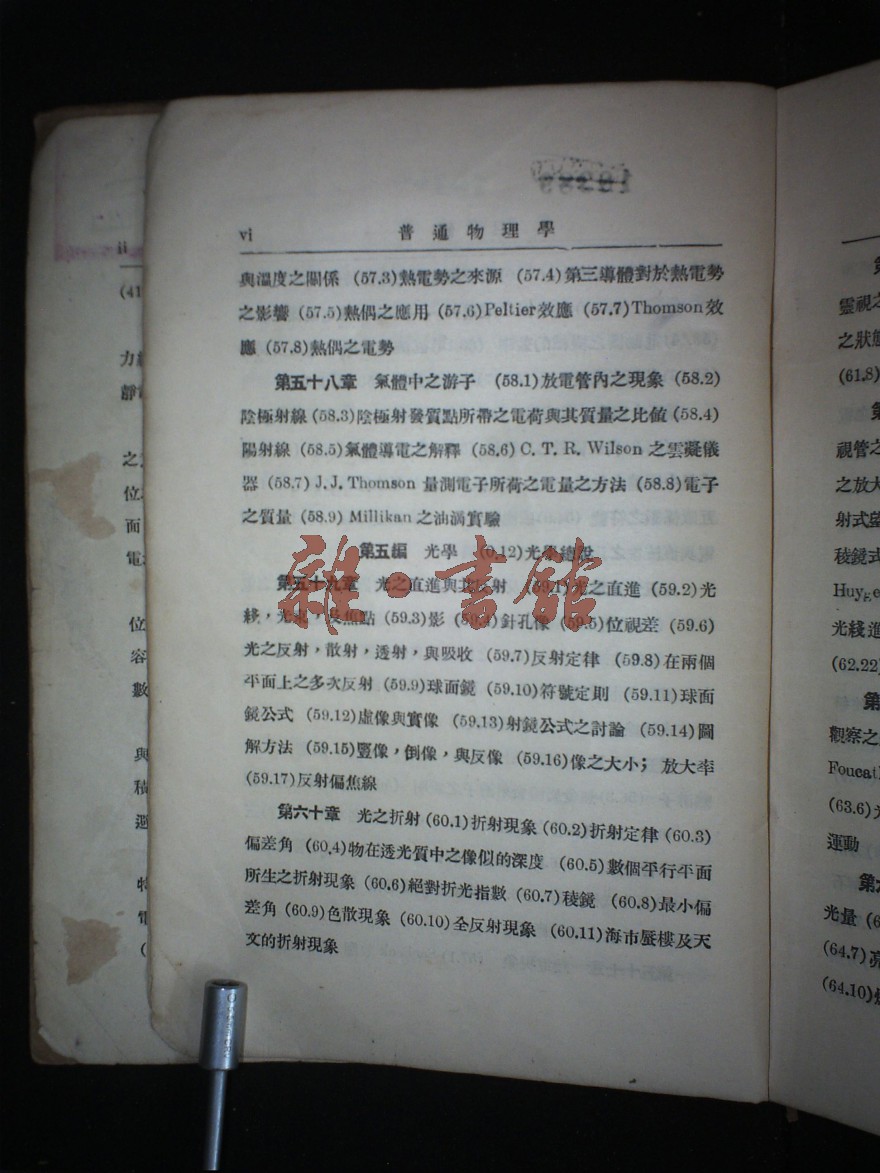 10389
vi 普通物理學
與溫度之關係 (57.3)熱電勢之來源 (57.4)第三導體對於熱電勢
之影響 (57.5)熱偶之應用 (57.6)Peltier效應 (57.7)Thomson效
應 (57.8)熱偶之電勢
第五十八章 氣體中之游子 (58.1)放電管內之現象 (58.2)
陰極射線 (58.3)陰極射發質點所帶之電荷與其質量之比值 (58.4)
陽射線 (58.5)氣體導電之解釋 (58.6) C. T. R. Wilson 之雲凝儀
器 (58.7) J. J. Thomson 量測電子所荷之電量之方法 (58.8)電子
之質量 (58.9) Millikan 之油滴實驗
第五編 光學 (0.12)光學總說
第五十九章 光之直進與其反射 (59.1)光之直進 (59.2)光
綫,光束,及焦點 (59.3)影 (59.4)針孔像 (59.5)位視差 (59.6)
光之反射,散射,透射,與吸收 (59.7)反射定律 (59.8)在兩個
平面上之多次反射 (59.9)球面鏡 (59.10)符號定則 (59.11)球面
鏡公式 (59.12)虛像與實像 (59.13)射鏡公式之討論 (59.14)圖
解方法 (59.15)豎像,倒像,與反像 (59.16)像之大小; 放大率
(59.17)反射偏焦線
第六十章 光之折射 (60.1)折射現象 (60.2)折射定律 (60.3)
偏差角 (60.4)物在透光質中之像似的深度 (60.5)數個平行平面
所生之折射現象 (60.6)絕對折光指數 (60.7)稜鏡 (60.8)最小偏
差角 (60.9)色散現象 (60.10)全反射現象 (60.11)海市蜃樓及天
文的折射現象
雜·書館
ii
(41
力
靜
之
位
面
電
位
容
數
與
積
電
(
第
靈視之
之狀態
(61.8)
第
視管之
之放大
射式望
稜鏡式
Huyge
光綫進
(62.22)
第
觀察之
Foucat
(63.6)光
運動
第
光量 (6
(64.7)亮
(64.10)